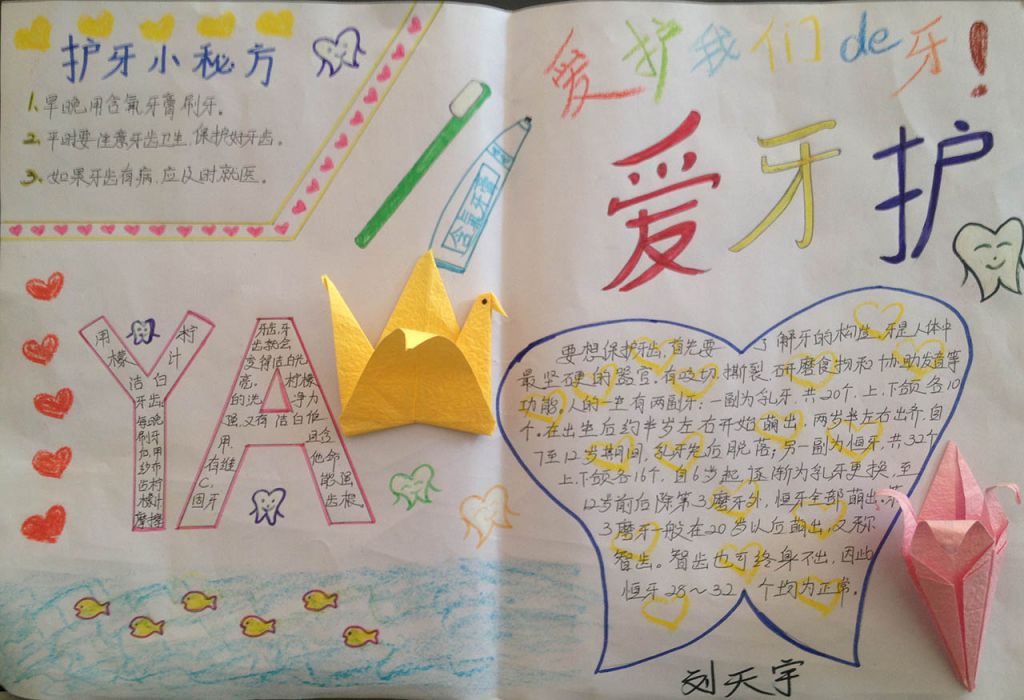 护牙小秘方
1.早晚用含氟牙膏刷牙。
2.平时要注意牙齿卫生,保护好牙齿。
3.如果牙齿有病,应及时就医。
含氟牙膏
YA
用柠
檬汁
洁白
牙齿。
每晚
刷牙
后,用
纱布
占柠
檬汁
摩擦
牙齿,牙
齿就会
变得洁白光
亮。柠檬
的洗净力
强,又有洁白作
用,且含
有维他命
C,能强
固牙齿根。
爱护我们de牙!
爱牙护
要想保护牙齿,首先要了解牙的构造。牙是人体中
最坚硬的器官,有咬切、撕裂、研磨食物和协助发音等
功能。人的一生有两副牙:一副为乳牙,共20个,上、下颌各10
个。在出生后约半岁左右开始萌出,两岁半左右出齐,自
7至12岁其间,乳牙先后脱落;另一副为恒牙,共32个
上、下颌各16个,自6岁起,逐渐为乳牙更换,至
12岁前后除第3磨牙外,恒牙全部萌出。第
3磨牙一般在20岁以后萌出,又称
智齿。智齿也可终身不出,因此
恒牙28~32个均为正常。
刘天宇